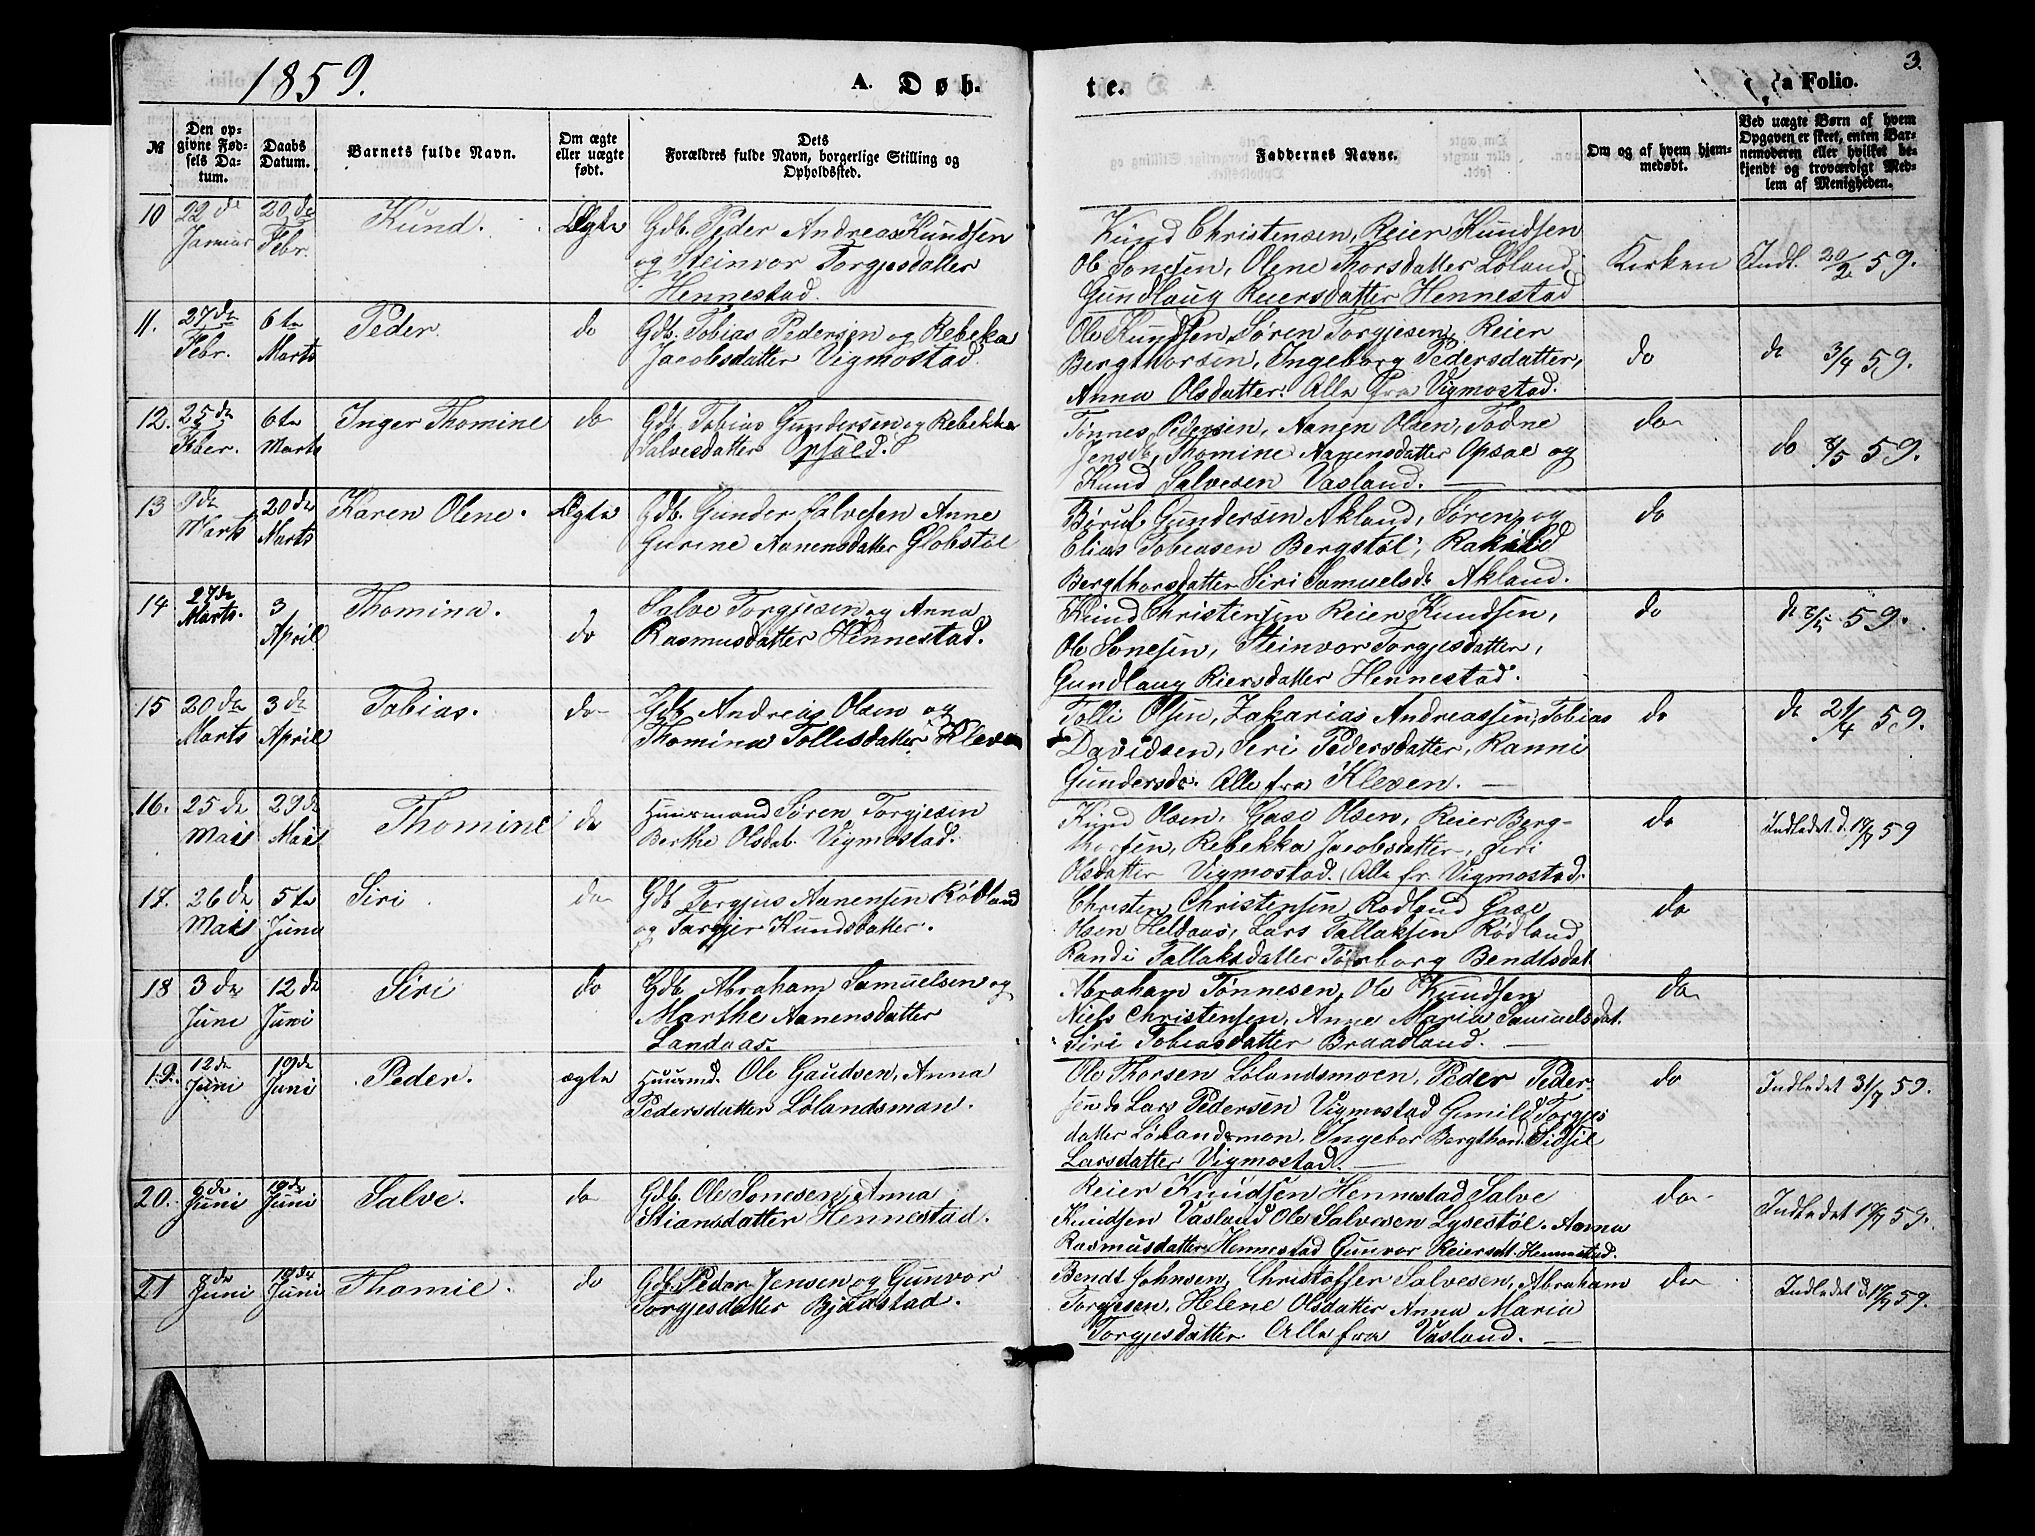 1859.
A. D ø b- t e. a Folio. 3.
№ Den opgivne Fødsels Datum. Daabs Datum. Barnets fulde Navn. Om ægte eller uægte født. Dets Forældres fulde Navn, borgerlige Stilling og Opholdssted. Faddernes Navne. Om og af hvem hjemmedøbt. Ved uægte Børn af hvem Opgaven er skeet, enten Barnemoderen eller hvilket bekjendt og troværdigt Medlem af Menigheden.
10 22de Januar 20de Febr. Knud. Ægte Gdb. Peder Andreas Knudsen
og Steinvor Torgjesdatter
Hennestad.
Knud Christensen, Reier Knudsen
Ole Sonesen, Olene Thorsdatter Løland
Gundlaug Reiersdatter Hennestad
Kirken Indl. 20/2 59.
11. 27de Febr. 6te Marts Peder. do Gdb. Tobias Pedersen og Rebeka
Jacobsdatter Vigmostad.
Ole Knudsen, Søren Torgjesen, Reier
Bergthorsen, Ingeborg Pedersdatter,
Anna Olsdatter. Alle fra Vigmostad.
do do 3/4 59.
12. 25de Feber. 6te Marts Inger Thomine do Gdb. Tobias Gundersen og Rebekka
Salvesdatter Opsald.
Tønnes Pedersen, Aanen Olsen, Todne
Jensd., Thomine Aanensdatter Opsal og
Knud Salvesen Vasland.
do do /5 59.
13 9de Marts 20de Marts Karen Olene. Ægte Gdb. Gunder Salvesen Anne
Gurine Aanensdatter Globstøl
Børul Gundersen Akland, Søren og
Elias Tobiasen Bergstøl, Rakild
Bergthorsdatter Siri Samuelsdr Akland.
do
14 27de Marts. 3 April Thomina. do Salve Torgjesen og Anna
Rasmusdatter Hennestad.
Knud Christensen Reier Knudsen,
Ole Sonesen, Steinvor Torgjesdatter,
Gundlaug Riersdatter Hennestad.
do do /5 59.
15 20de Marts 3de April Tobias. do Gdb. Andreas Olsen og
Thomina Tollisdatter Kleven
Tolli Olsen, Zakarias Andreassen, Tobias
Davidsen, Seri Pedersdatter, Ranni
Gundersdr. Alle fra Kleven.
do do 24/4 59.
16. 25de Mais 29de Mais Thomine do Huusmand Søren Torgjesen
Berthe Olsdat. Vigmostad.
Knud Olsen, Gase Olsen, Reier Berg-
thorsen, Rebekka Jacobsdatter, Siri
Olsdatter Vigmostad. Alle fr. Vigmostad.
do Indledet d. /7 59
17. 26de Mais 5te Juni Siri do Gdb Torgjus Aanensen Rødland
og Targjer Knudsdatter.
Christen Christensen Rodland Gase
Olsen Heldaas, Lars Tallaksen Rødland
Randi Tallaksdatter Torborg Bendtsdat
do
18 3de Juni 12de Juni Siri do Gdb Abraham Samuelsen og
Marthe Aanensdatter
Landaas.
Abraham Tønnesen, Ole Knudsen
Niels Christensen, Anne Maria Samuelsdat.
Siri Tobiasdatter Braadland.
do
19. 12de Juni 19de Juni Peder. ægte Huusmd. Ole Gaudsen, Anna
Pedersdatter Lølandsmon.
Ole Thorsen Lølandsmoen, Peder Peder-
sen do Lars Pedersen Vigmostad Gunild Torgjes
datter Lølandsmon, Ingebor Bergthord. Sidsil
Larsdatter Vigmostad.
do Indledet 31/7 59.
20. 6de Juni 19de Juni Salve. do Gdb. Ole Sonesen, Anna
Stiansdatter Hennestad.
Reier Knudsen Hennestad Salve
Knudsen Vasland Ole Salvesen Lysestøl. Anna
Rasmusdatter Hennestad Gunvor Reiersdt. Hennestad.
do Indledet /7 59.
21 8de Juni 19de Juni Thomie. do Gdb. Peder Jensen og Gunvor
Torgjesdatter Bjelstad.
Bendt Johnsen, Christoffer Salvesen, Abraham
Torgjesen, Helene Olsdatter Anna Maria
Torgjesdatter Alle fra Vasland.
do Indledet d. /7 59.